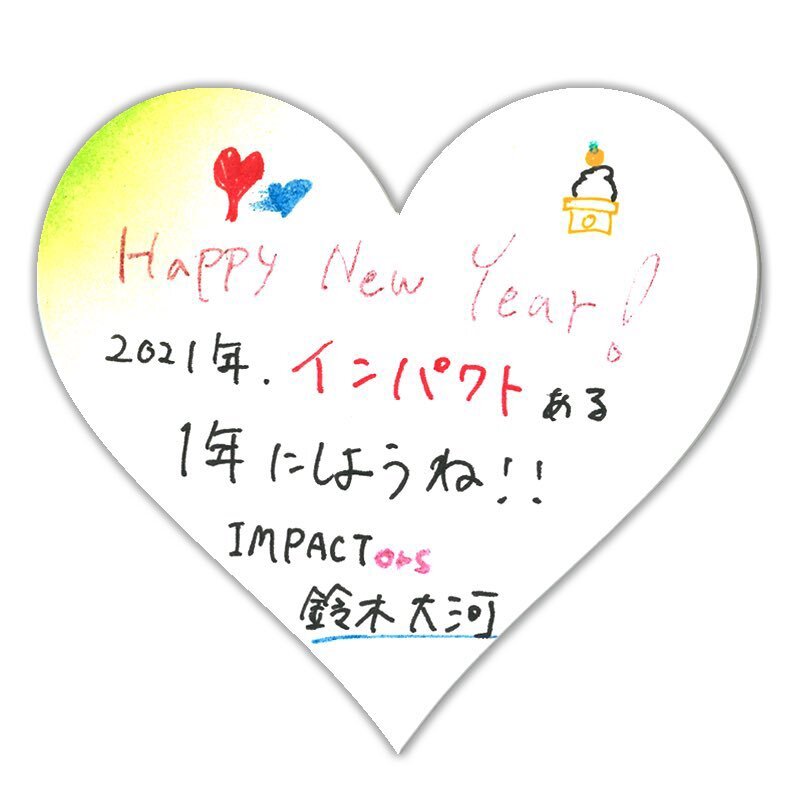 Happy New Year!
2021年.インパクトある
1年にしようね!!
IMPACTors
鈴木大河